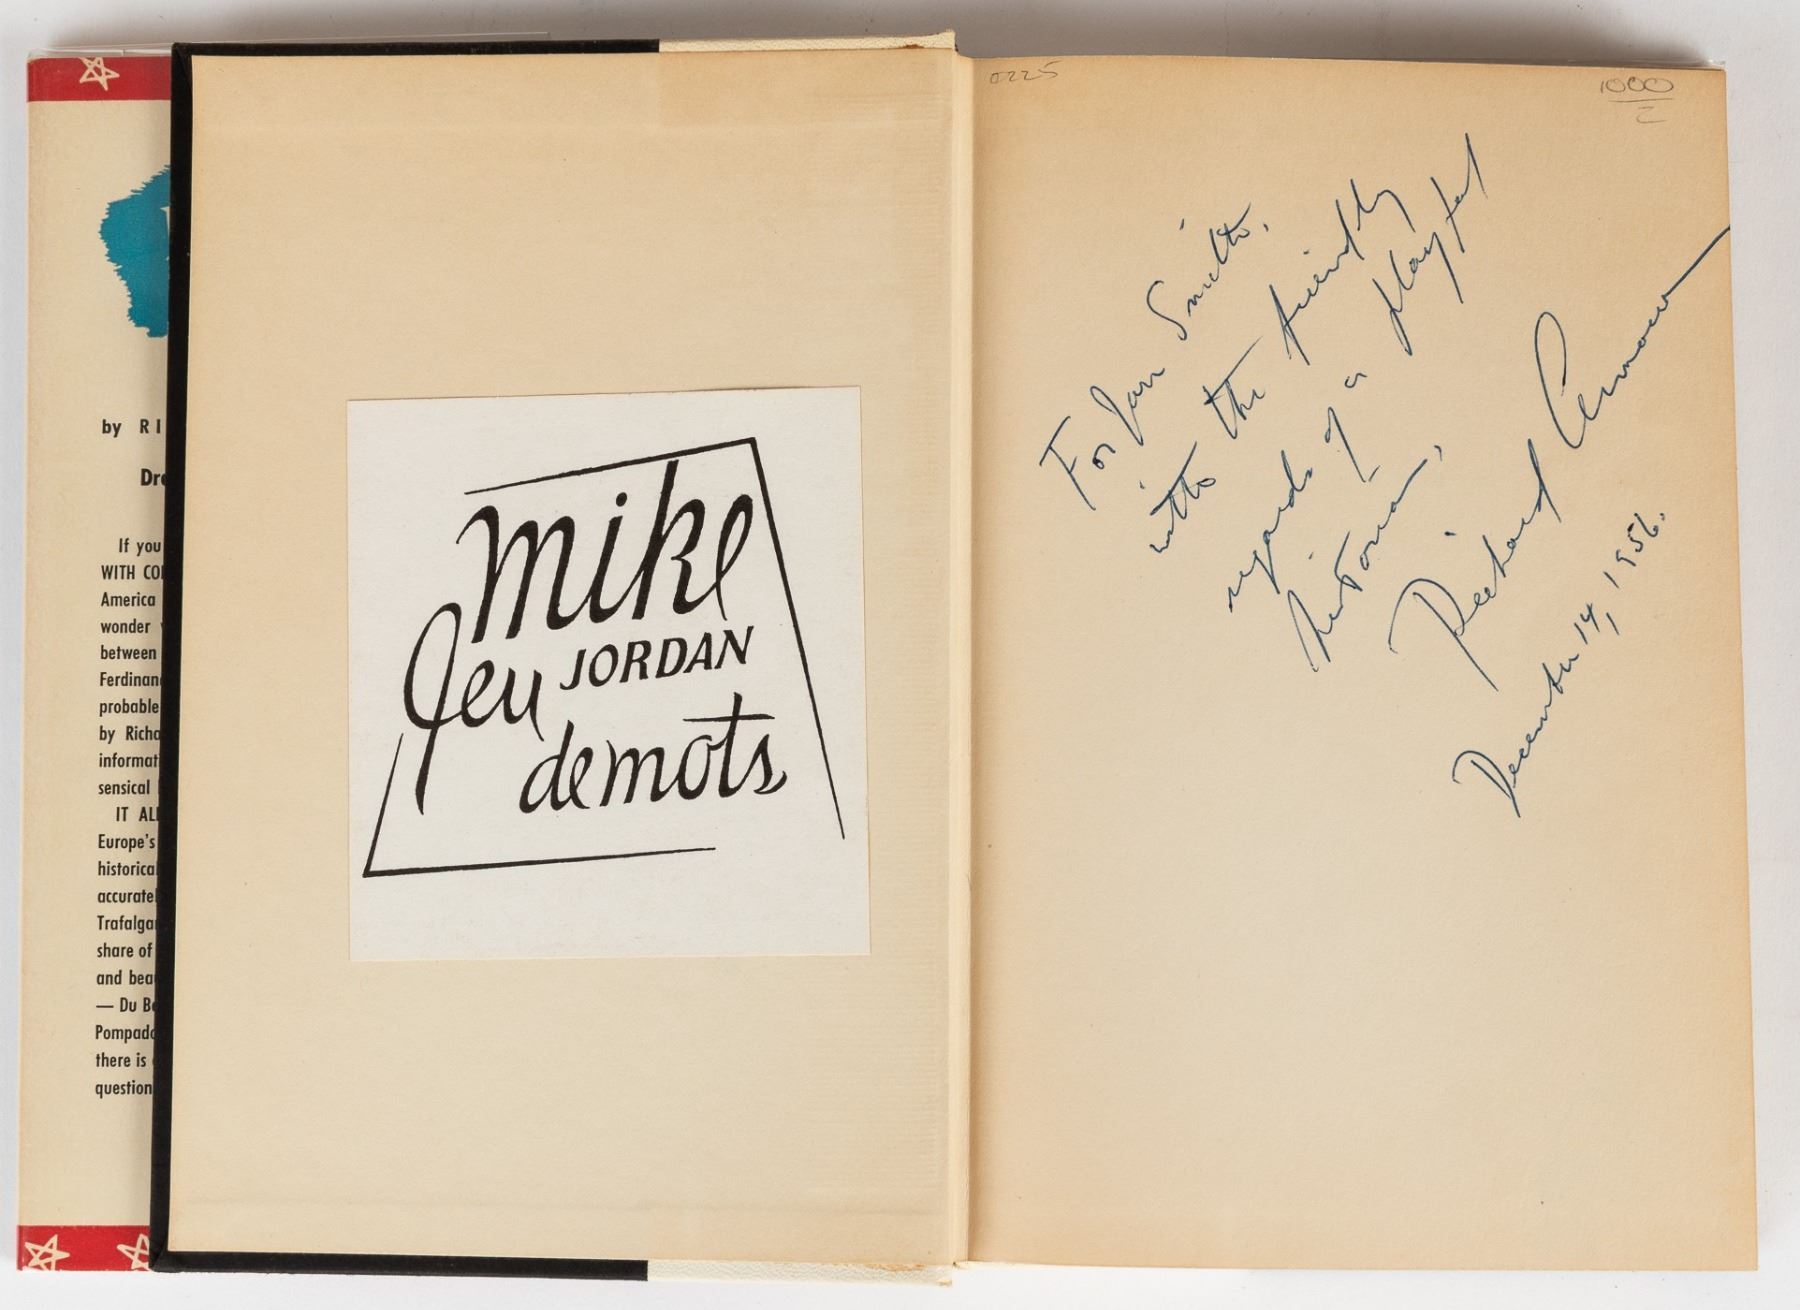 by RI
Dre
If you
WITH COL
America
wonder
between
Ferdinand
probable
by Richa
informat
sensical
IT ALL
Europe's
historical
accuratel
Trafalgar
share of
and beau
— Du Ba
Pompado
there is
question
mike
JORDAN
Jeu
demots
0225
1000
For Jan Smith,
with the friendly
regards of a playful
historian,
Richard Armour
December 14, 1956.